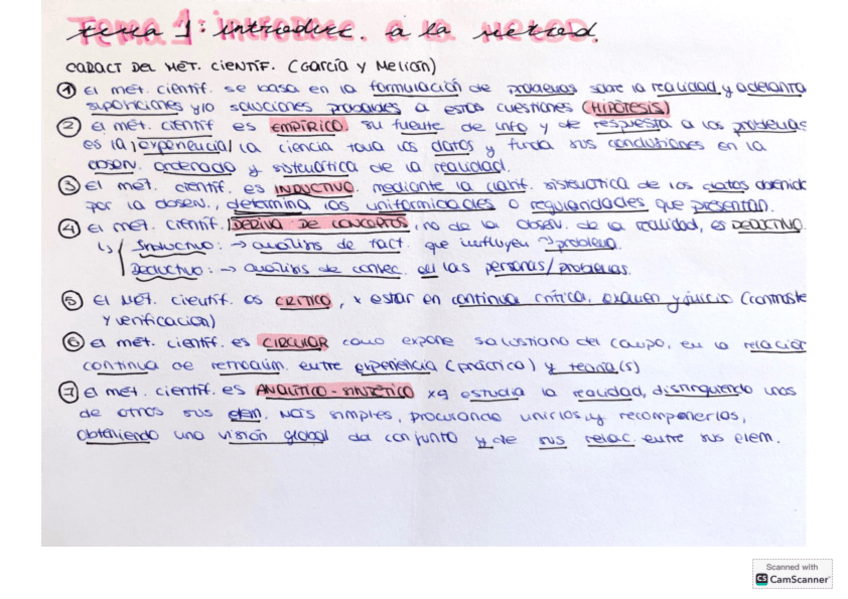 Tema 1: introducc. a la metod.
CARACT DEL MÉT. CIENTÍF. (García y Melian)
① El mét. científ. se basa en la formulación de problemas sobre la realidad y adelanta
suposiciones y/o soluciones probables a estas cuestiones (HIPÓTESIS)
② el mét. científ es EMPÍRICO. su fuente de info y de respuesta a los problemas
es la experiencia/ la ciencia toma los datos y funda sus conclusiones en la
observ. ordenada y sistemática de la realidad.
③ El mét. científ. es INDUCTIVO. mediante la clasif. sistemática de los datos obtenido
por la observ., determina las uniformidades o regularidades que presentan.
④ El mét. científ. DERIVA DE CONCEPTOS, no de la observ. de la realidad, es DEDUCTIVO.
↳ Inductivo: → análisis de fact. que influyen → problema.
Deductivo: → análisis de consec. en las personas/problemas.
⑤ El Mét. científ. es CRÍTICO, x estar en continua crítica, examen y juicio (contraste
y verificación)
⑥ el mét. científ. es CIRCULAR como expone Salustiano del campo, en la relación
continua de retroalim. entre experiencia (práctica) y teoría(s)
⑦ El mét. científ. es ANALÍTICO-SINTÉTICO xq estudia la realidad, distinguiendo unos
de otros sus elem. más simples, procurando unirlos y recomponerlos,
obteniendo una visión global del conjunto y de sus relac. entre sus elem.
Scanned with
CS CamScanner